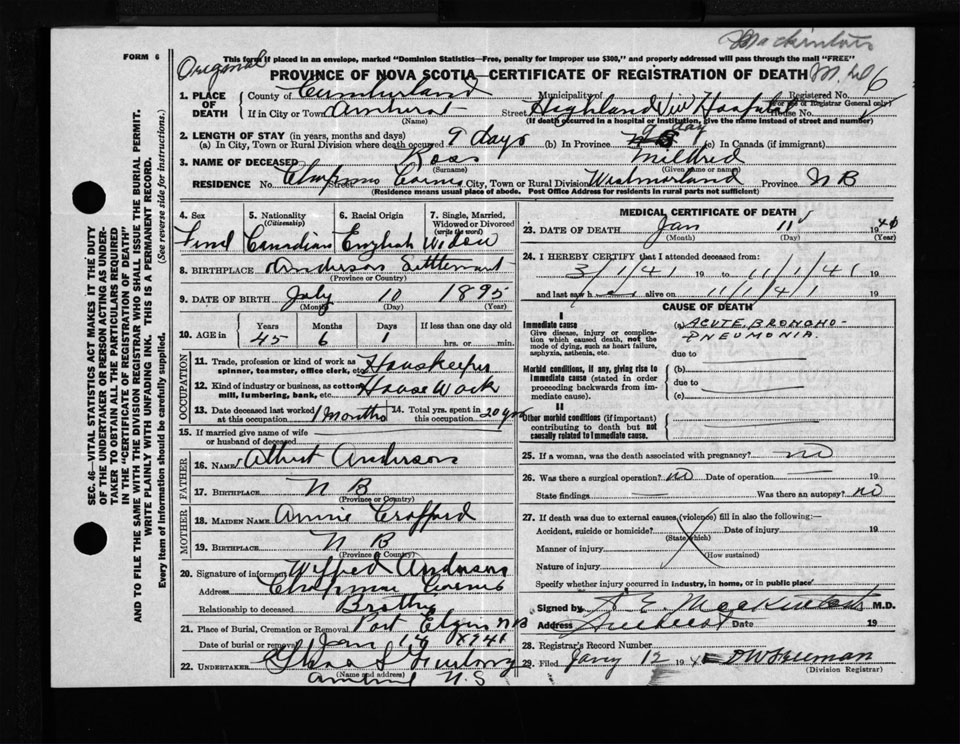 Mackintosh
FORM 6
This form if placed in an envelope, marked "Dominion Statistics—Free, penalty for improper use $300," and properly addressed will pass through the mail "FREE"
Original
PROVINCE OF NOVA SCOTIA—CERTIFICATE OF REGISTRATION OF DEATH
1. PLACE OF DEATH
County of Cumberland Municipality of Registered No. 6
(For use of Registrar General only)
If in City or Town Amherst Street Highland View Hospital House No.
(Name) (If death occurred in a hospital or institution, give the name instead of street and number)
2. LENGTH OF STAY (in years, months and days)
(a) In City, Town or Rural Division where death occurred 9 days (b) In Province 9 day (c) In Canada (if immigrant)
3. NAME OF DECEASED Ross Mildred
(Surname) (Given name or names)
RESIDENCE No. Street Chapmans Corner City, Town or Rural Division Westmorland Province N B
(Residence means usual place of abode. Post Office Address for residents in rural parts not sufficient)
4. Sex
5. Nationality (Citizenship)
6. Racial Origin
7. Single, Married, Widowed or Divorced (write the word)
Canadian English Widow
8. BIRTHPLACE Anderson Settlement
(Province or Country)
9. DATE OF BIRTH July 10 1895
(Month) (Day) (Year)
10. AGE in Years Months Days If less than one day old
45 6 1 hrs. or min.
OCCUPATION
11. Trade, profession or kind of work as spinner, teamster, office clerk, etc. Houskeeper
12. Kind of industry or business, as cotton mill, lumbering, bank, etc. House Work
13. Date deceased last worked at this occupation 1 Months 14. Total yrs. spent in this occupation 20 yrs
15. If married give name of wife or husband of deceased
FATHER
16. Name Albert Anderson
17. Birthplace N B
(Province or Country)
MOTHER
18. MAIDEN NAME Annie Crofford
19. BIRTHPLACE N B
(Province or Country)
20. Signature of informant Wilfred Anderson
Address Chapman Corner
Relationship to deceased Brother
21. Place of Burial, Cremation or Removal Port Elgin NB
Date of burial or removal Jan 1941
22. UNDERTAKER
(Name and address)
Amherst N.S
MEDICAL CERTIFICATE OF DEATH
23. DATE OF DEATH Jan 11 19
(Month) (Day) (Year)
24. I HEREBY CERTIFY that I attended deceased from:
3/1/41 19 to 11/1/41 19
and last saw h er alive on 11/1/41 19
CAUSE OF DEATH
I
Immediate cause
Give disease, injury or complication which caused death, not the mode of dying, such as heart failure, asphyxia, asthenia, etc.
(a) ACUTE BRONCHO-
PNEUMONIA
due to
Morbid conditions, if any, giving rise to immediate cause (stated in order proceeding backwards from immediate cause).
(b)
due to
(c)
II
Other morbid conditions (if important) contributing to death but not causally related to immediate cause.
25. If a woman, was the death associated with pregnancy? no
26. Was there a surgical operation? no Date of operation 19
State findings Was there an autopsy? no
27. If death was due to external causes (violence) fill in also the following:—
Accident, suicide or homicide? Date of injury 19
(State which)
Manner of injury
(How sustained)
Nature of injury
Specify whether injury occurred in industry, in home, or in public place
Signed by A E. Mackintosh M.D.
Address Amherst Date 19
28. Registrar's Record Number
29. Filed Jany 12 194 DW Freeman
(Division Registrar)
SEC. 46—VITAL STATISTICS ACT MAKES IT THE DUTY
OF THE UNDERTAKER OR PERSON ACTING AS UNDER-
TAKER TO OBTAIN ALL THE PARTICULARS REQUIRED
IN THE "CERTIFICATE OF REGISTRATION OF DEATH"
AND TO FILE THE SAME WITH THE DIVISION REGISTRAR WHO SHALL ISSUE THE BURIAL PERMIT.
WRITE PLAINLY WITH UNFADING INK. THIS IS A PERMANENT RECORD.
Every item of information should be carefully supplied. (See reverse side for instructions.)